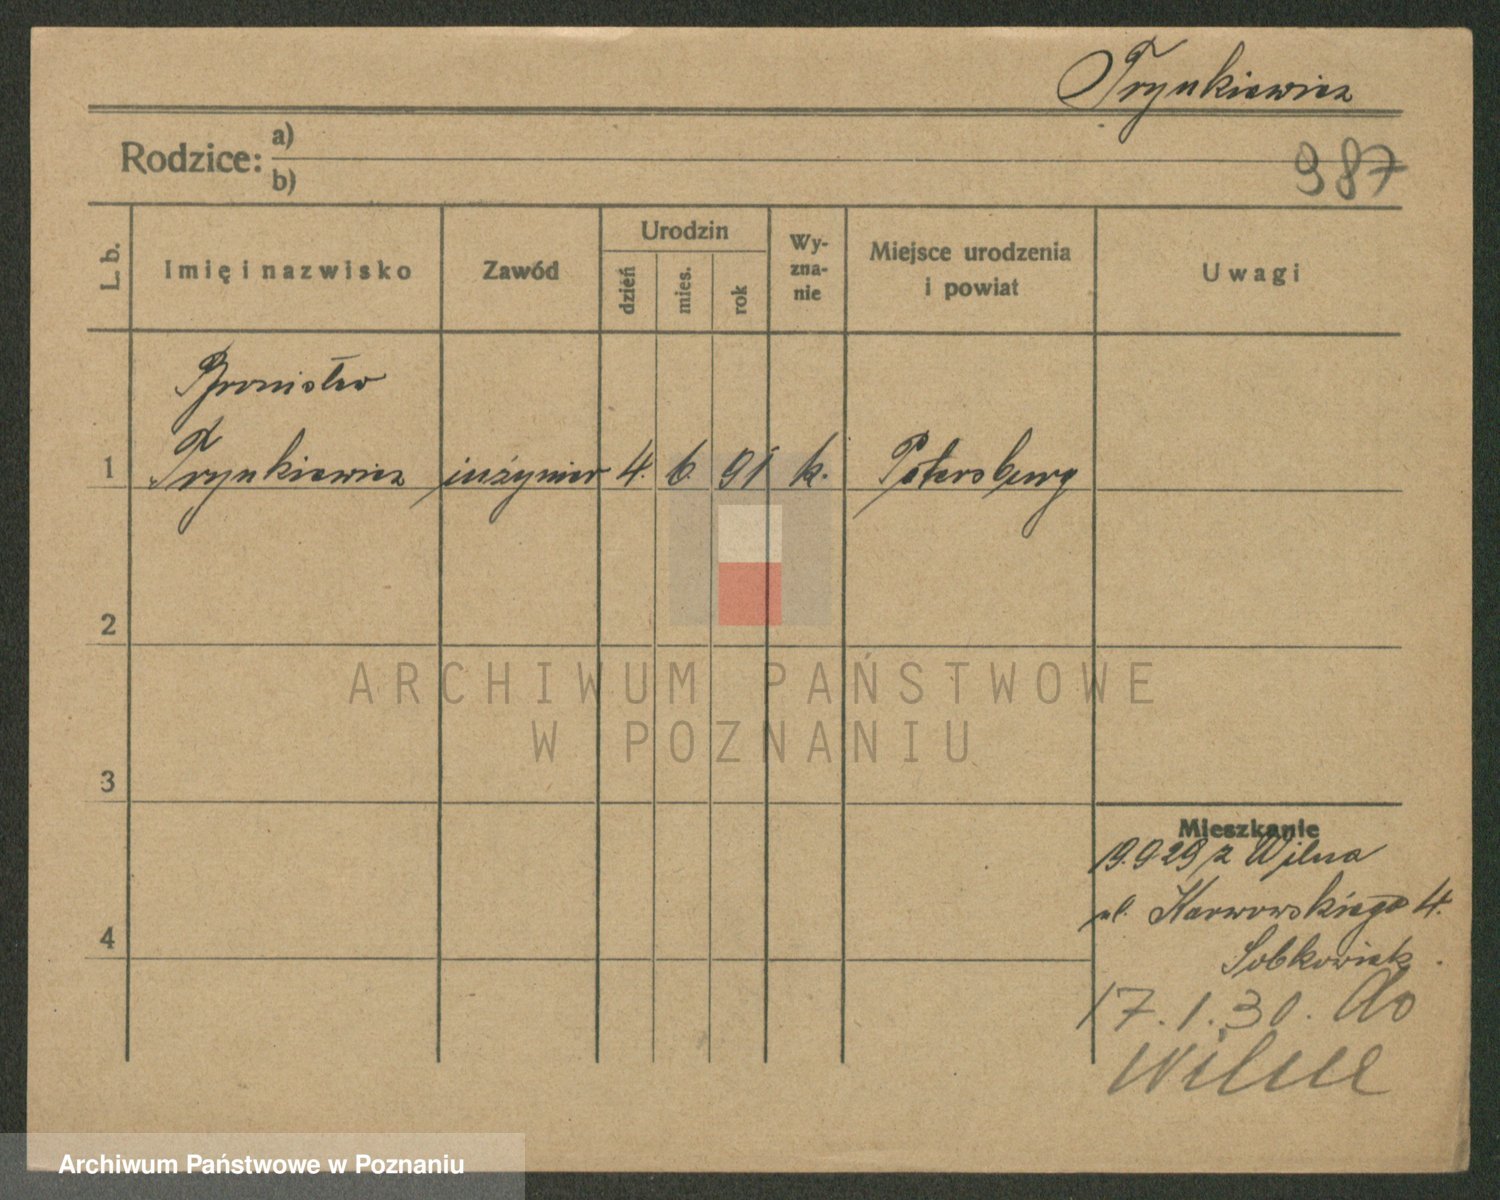 Trynkiewicz
Rodzice: a)
b)
987
L. b.
Imię i nazwisko
Zawód
Urodzin
dzień
mies.
rok
Wy-
zna-
nie
Miejsce urodzenia
i powiat
Uwagi
Bronisław
1 Trynkiewicz inżynier 4. 6. 91 k. Petersburg
2
3
4
ARCHIWUM PAŃSTWOWE
W POZNANIU
Mieszkanie
19.9 29 z Wilna
ul. Karwowskiego 4.
Sobkowiak.
17.1.30. do
Wilna
Archiwum Państwowe w Poznaniu